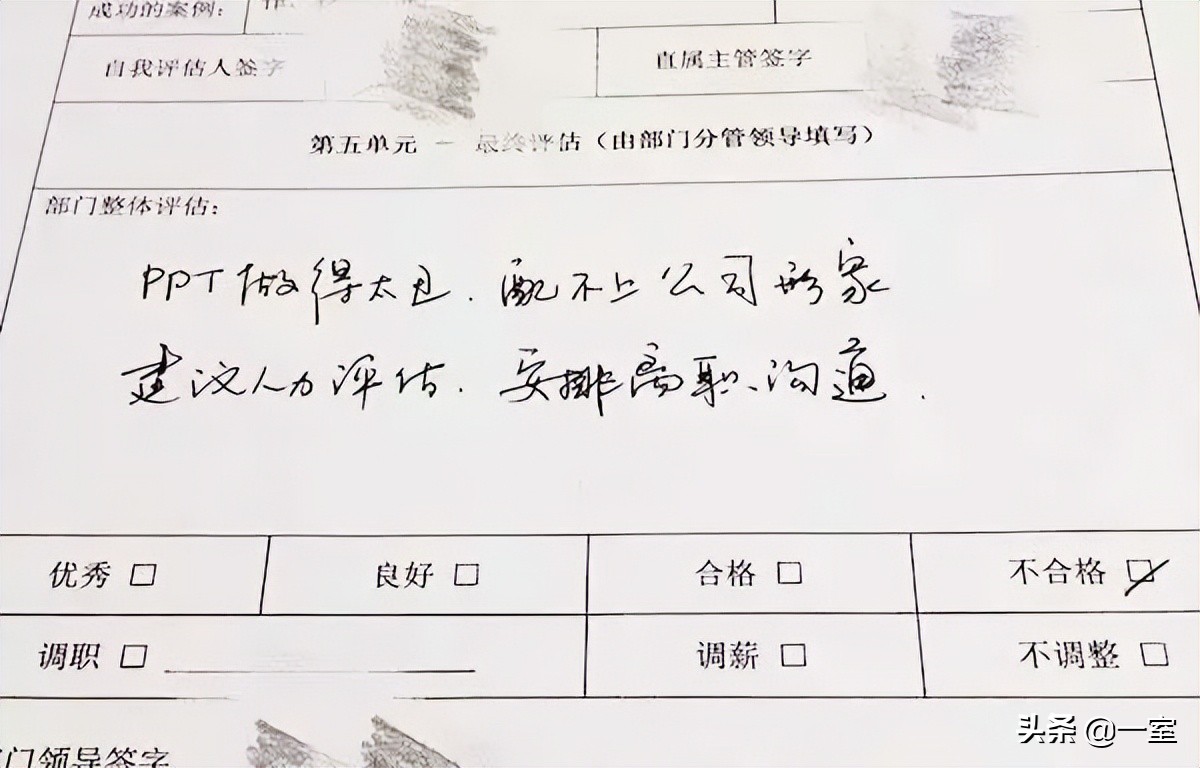 成功的案例：
自我评估人签字 直属主管签字
第五单元 － 最终评估（由部门分管领导填写）
部门整体评估：
PPT做得太丑．配不上公司形象
建议人力评估．安排离职沟通．
优秀 □ 良好 □ 合格 □ 不合格 ☑
调职 □ 调薪 □ 不调整 □
门领导签字
头条 @一室